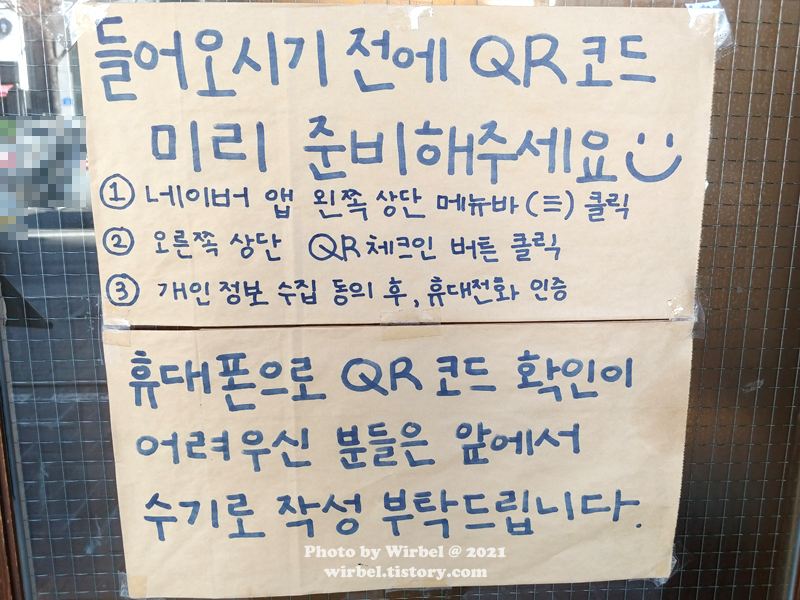 들어오시기 전에 QR코드
미리 준비해주세요
① 네이버 앱 왼쪽 상단 메뉴바(☰) 클릭
② 오른쪽 상단 QR체크인 버튼 클릭
③ 개인정보 수집 동의 후, 휴대전화 인증
휴대폰으로 QR코드 확인이
어려우신 분들은 앞에서
수기로 작성 부탁드립니다.
Photo by Wirbel @ 2021
wirbel.tistory.com